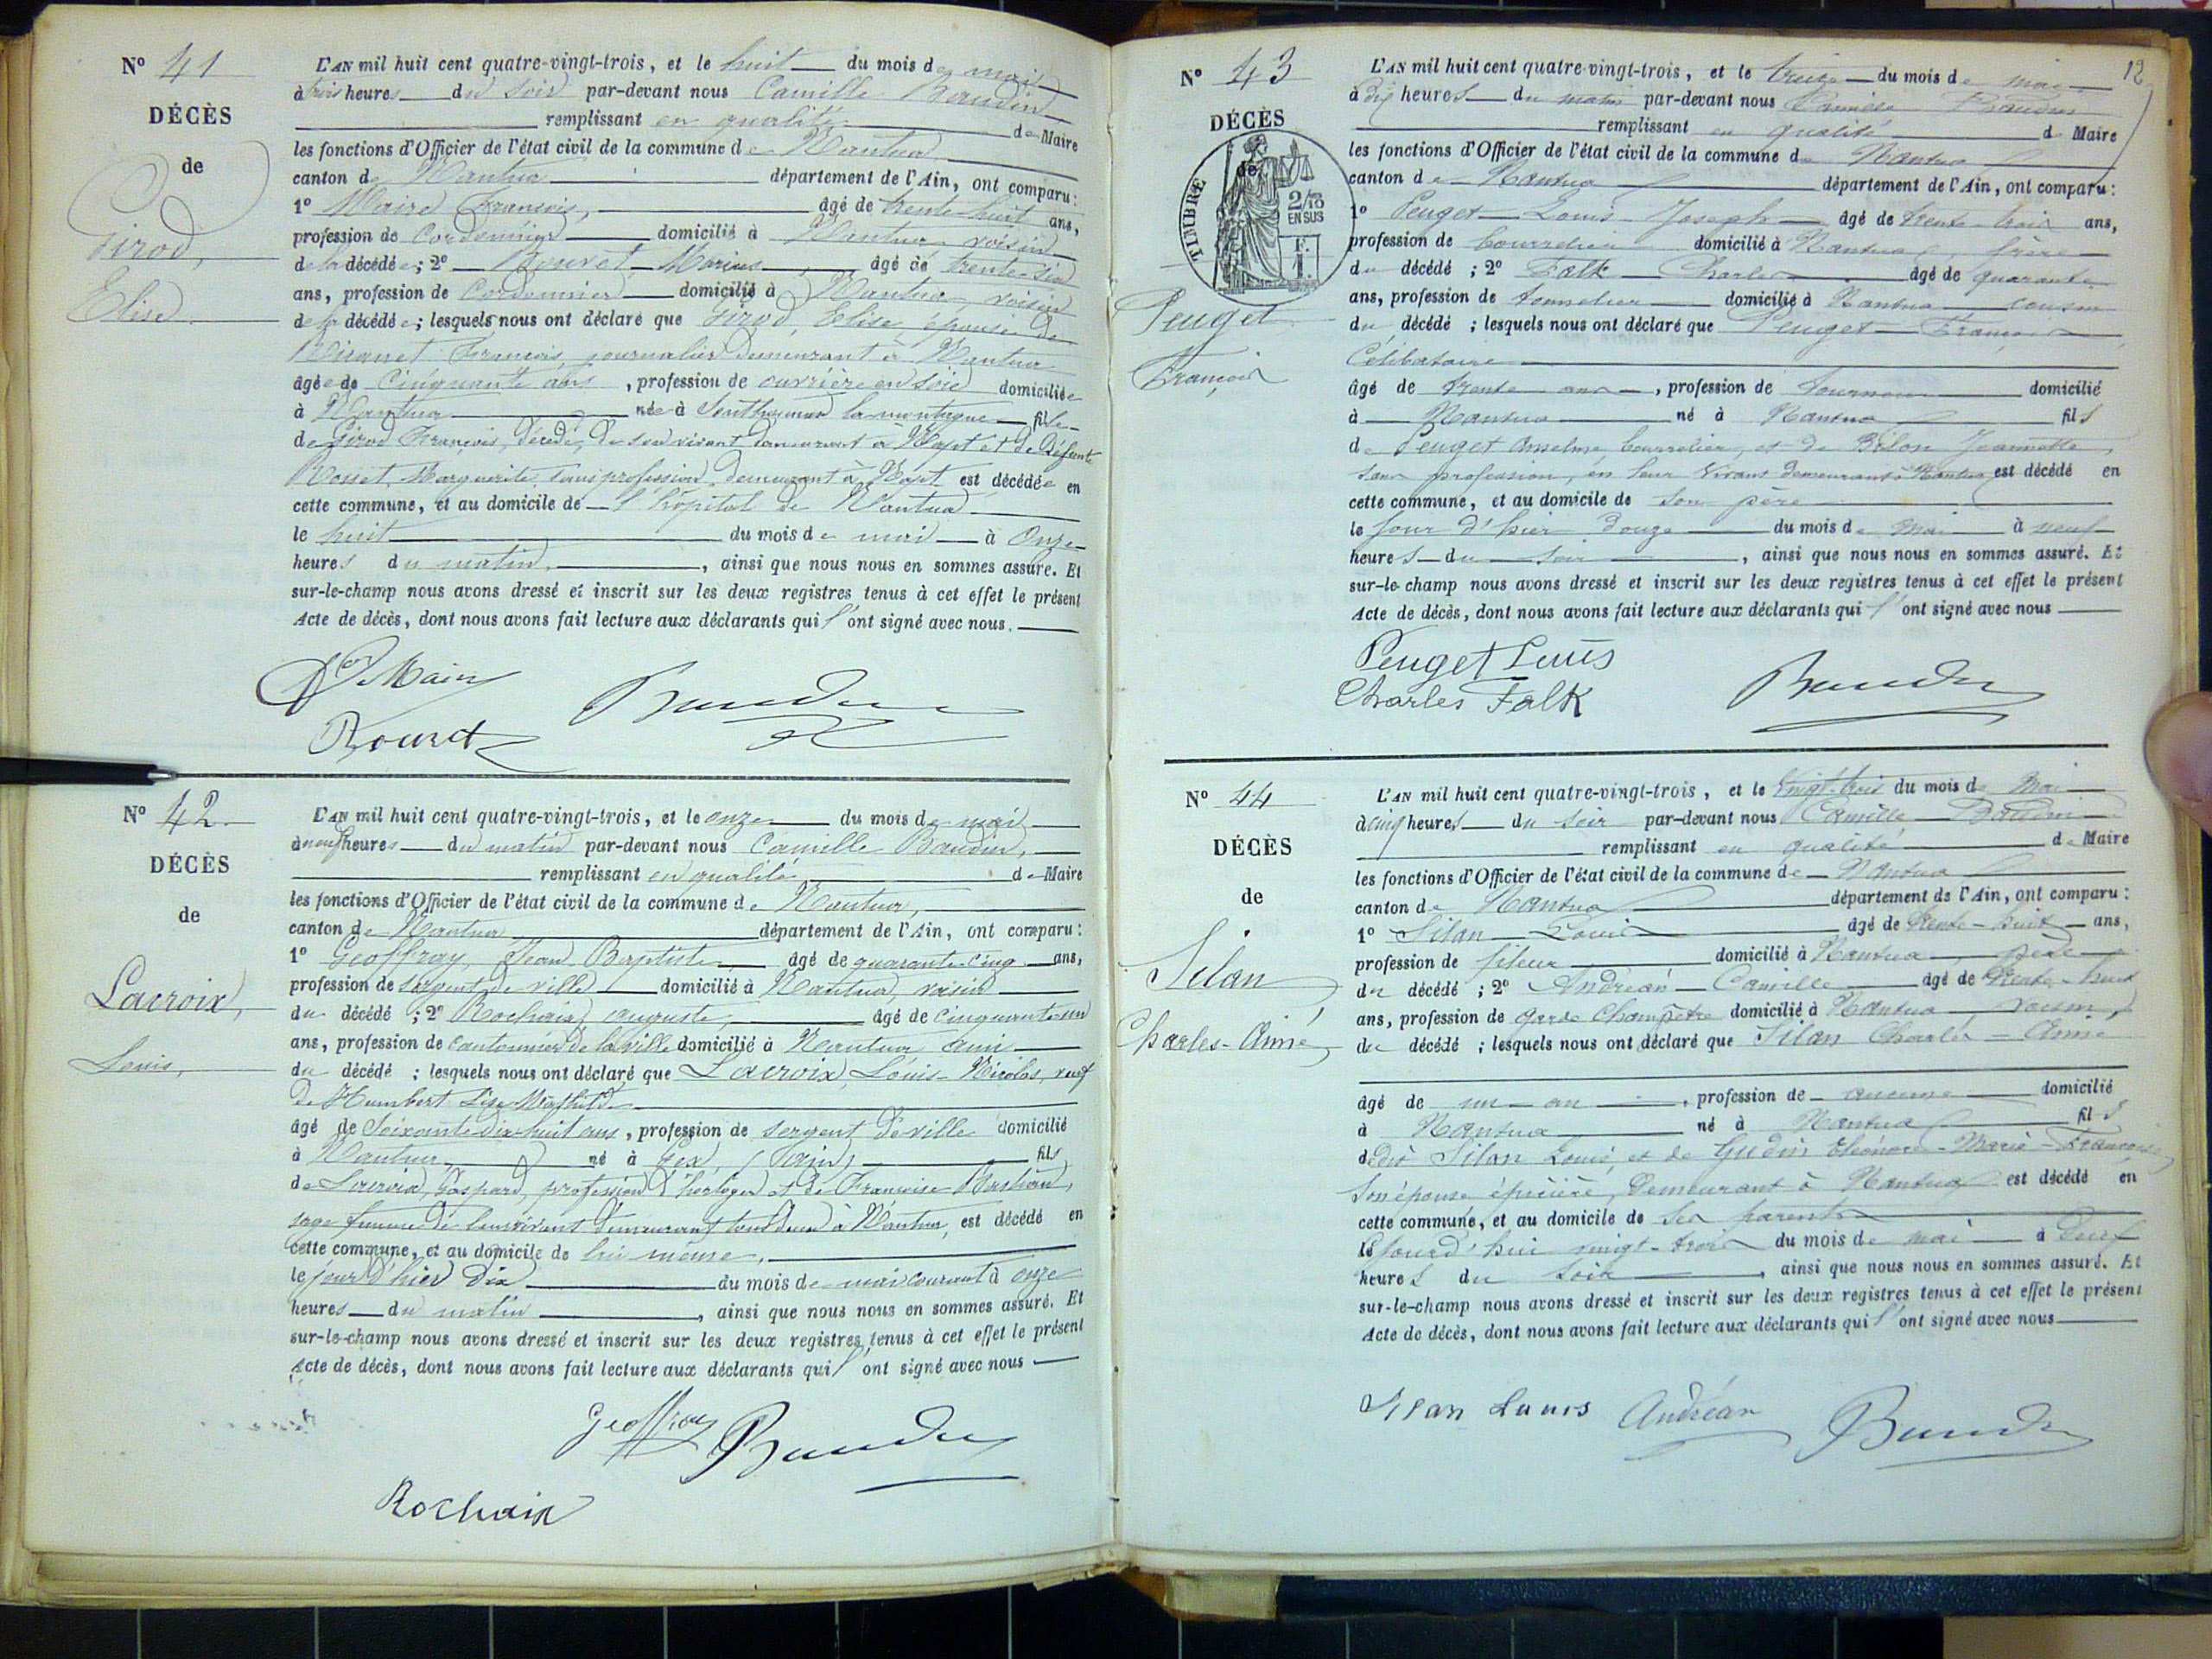 N° 41
DÉCÈS
de
Girod,
Elise
L'AN mil huit cent quatre-vingt-trois, et le huit du mois de mai
à trois heures du soir par-devant nous Camille Baudin
remplissant en qualité de Maire
les fonctions d'Officier de l'état civil de la commune de Nantua
canton de Nantua département de l'Ain, ont comparu:
1° Maire François, âgé de trente-huit ans,
profession de Cordonnier domicilié à Nantua voisin
de la décédée; 2° Bouvet Marius âgé de trente-six
ans, profession de Cordonnier domicilié à Nantua voisin
de la décédée; lesquels nous ont déclaré que Girod, Elise, épouse de
François, journalier demeurant à Nantua
âgée de Cinquante ans, profession de ouvrière en soie domiciliée
à Nantua née à la montagne fille
de Girod François, décédé, de son vivant demeurant à Napt et de défunte
Rosset, Marguerite, sans profession, demeurant à Napt est décédée en
cette commune, et au domicile de l'hôpital de Nantua
le huit du mois de mai à Onze
heures du matin, ainsi que nous nous en sommes assuré. Et
sur-le-champ nous avons dressé et inscrit sur les deux registres tenus à cet effet le présent
Acte de décès, dont nous avons fait lecture aux déclarants qui l'ont signé avec nous.
Baudin
N° 42
DÉCÈS
de
Lacroix,
Louis,
L'AN mil huit cent quatre-vingt-trois, et le onze du mois de mai
à neuf heures du matin par-devant nous Camille Baudin,
remplissant en qualité de Maire
les fonctions d'Officier de l'état civil de la commune de Nantua,
canton de Nantua département de l'Ain, ont comparu:
1° Geoffray, Jean Baptiste âgé de quarante-cinq ans,
profession de sergent de ville domicilié à Nantua, voisin
du décédé; 2° Rochaix Auguste, âgé de cinquante-un
ans, profession de cantonnier de la ville domicilié à Nantua ami
du décédé; lesquels nous ont déclaré que Lacroix, Louis-Nicolas, veuf
de Humbert Lise Mathilde
âgé de Soixante-dix-huit ans, profession de sergent de ville domicilié
à Nantua, né à Gex, (Ain) fils
de Lacroix, Gaspard, profession d'horloger et de Françoise Bastian,
sage femme de leur vivant demeurant tous deux à Nantua, est décédé en
cette commune, et au domicile de lui même,
le jour d'hier dix du mois de mai courant à onze
heures du matin, ainsi que nous nous en sommes assuré. Et
sur-le-champ nous avons dressé et inscrit sur les deux registres tenus à cet effet le présent
Acte de décès, dont nous avons fait lecture aux déclarants qui l'ont signé avec nous
Geoffray Baudin
Rochaix
12
N° 43
DÉCÈS
de
TIMBRE
2/10
EN SUS
F.
1.
Peuget
François
L'AN mil huit cent quatre-vingt-trois, et le treize du mois de mai
à dix heures du matin par-devant nous Camille Baudin
remplissant en qualité de Maire
les fonctions d'Officier de l'état civil de la commune de Nantua
canton de Nantua département de l'Ain, ont comparu:
1° Peuget Louis Joseph âgé de trente-trois ans,
profession de bourrelier domicilié à Nantua frère
du décédé; 2° Falk Charles âgé de quarante
ans, profession de tonnelier domicilié à Nantua cousin
du décédé; lesquels nous ont déclaré que Peuget François
Célibataire
âgé de trente ans, profession de tourneur domicilié
à Nantua né à Nantua fils
de Peuget Anselme, bourrelier, et de Jeannette,
sans profession, en leur vivant demeurant à Nantua est décédé en
cette commune, et au domicile de son père
le jour d'hier douze du mois de mai à neuf
heures du soir, ainsi que nous nous en sommes assuré. Et
sur-le-champ nous avons dressé et inscrit sur les deux registres tenus à cet effet le présent
Acte de décès, dont nous avons fait lecture aux déclarants qui l'ont signé avec nous
Peuget Louis
Charles Falk
Baudin
N° 44
DÉCÈS
de
Silan
Charles-Aimé
L'AN mil huit cent quatre-vingt-trois, et le vingt-trois du mois de Mai
à cinq heures du soir par-devant nous Camille Baudin
remplissant en qualité de Maire
les fonctions d'Officier de l'état civil de la commune de Nantua
canton de Nantua département de l'Ain, ont comparu:
1° Silan Louis âgé de trente-huit ans,
profession de fileur domicilié à Nantua, père
du décédé; 2° Andréan Camille âgé de trente-huit
ans, profession de garde champêtre domicilié à Nantua voisin,
du décédé; lesquels nous ont déclaré que Silan Charles = Aimé
âgé de un an, profession de aucune domicilié
à Nantua né à Nantua fils
de dit Silan Louis, et de Eléonore-Marie-Françoise
son épouse épicière, demeurant à Nantua est décédé en
cette commune, et au domicile de ses parents
le jourd'hui vingt-trois du mois de mai à
heures du soir, ainsi que nous nous en sommes assuré. Et
sur-le-champ nous avons dressé et inscrit sur les deux registres tenus à cet effet le présent
Acte de décès, dont nous avons fait lecture aux déclarants qui l'ont signé avec nous
Silan Louis Andréan Baudin